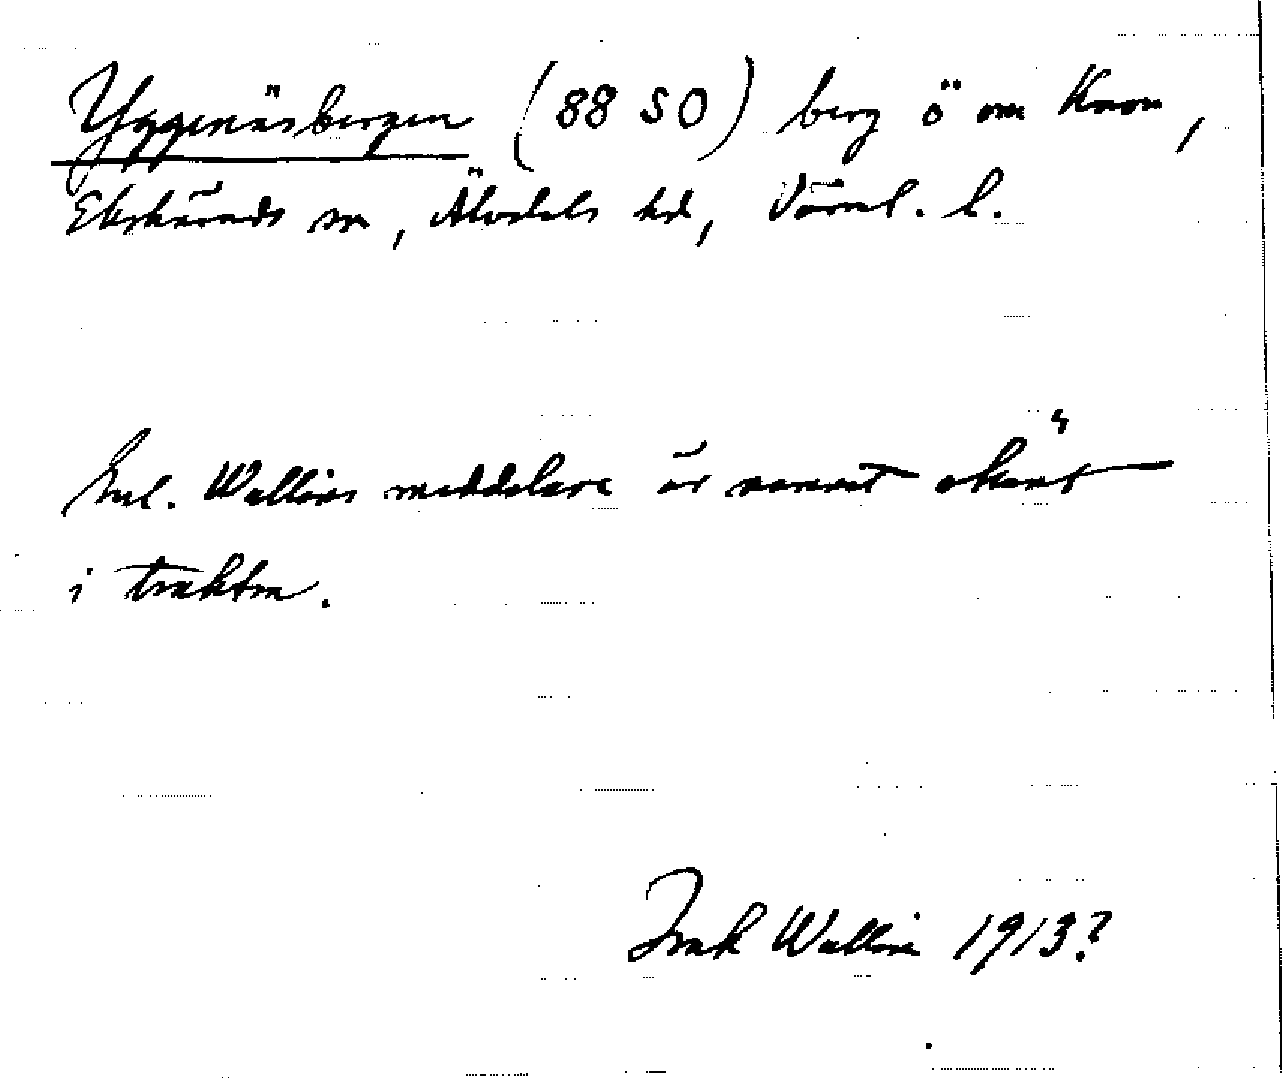 Yggenäsbergen (88 SO) berg ö om Knon,
Ekshärads sn, Älvdals hd, Värml. l.
Enl. Wallins meddelare är namnet okänt
i trakten.
Isak Wallin 1913?